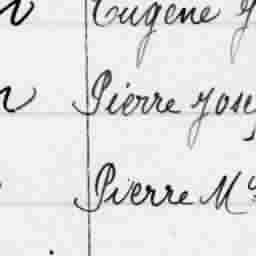 Eugène
Pierre Jose
Pierre M